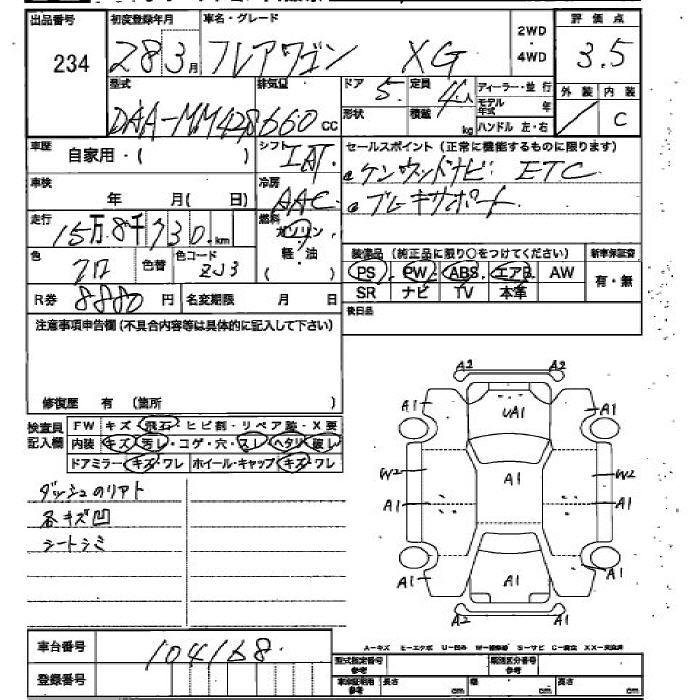 出品番号 初度登録年月 車名・グレード 2WD・4WD 評価点
234 28 3月 フレアワゴン XG 3.5
型式 排気量 ドア 定員 ディーラー・並行 外装 内装
DAA-MM42S 660cc 5 4人 モデル年式 年 C
形状 積載 kg ハンドル 左・右
車歴 シフト セールスポイント(正常に機能するものに限ります)
自家用・( ) IAT ケンウッドナビ ETC
車検 冷房
年 月( 日) AAC ブレーキサポート
走行 燃料
15万8千730km ガソリン
軽・油
( )
装備品(純正品に限り○をつけてください) 新車保証書
色 クロ 色替 色コード ZJ3
PS PW ABS エアB AW 有・無
R券 8880円 名変期限 月 日 SR ナビ TV 本革
注意事項申告欄(不具合内容等は具体的に記入して下さい) 後日品
修復歴 有(箇所 )
検査員記入欄 FW キズ・飛石・ヒビ割・リペア跡・X要
内装 キズ・汚レ・コゲ・穴・スレ・ヘタリ・破レ
ドアミラー・キズ・ワレ ホイール・キャップ・キズ・ワレ
ダッシュのリアト
各キズ凹
シートシミ
A2 A2
A1 UA1 A1
W2 A1 W2
A1 A1
A1 A1 A1
A2 A1
車台番号 104168
A-キズ E-エクボ U-凹み S-サビ
型式指定番号 類別区分番号
参考 参考
登録番号 長さ cm 幅 cm 高さ cm
参考